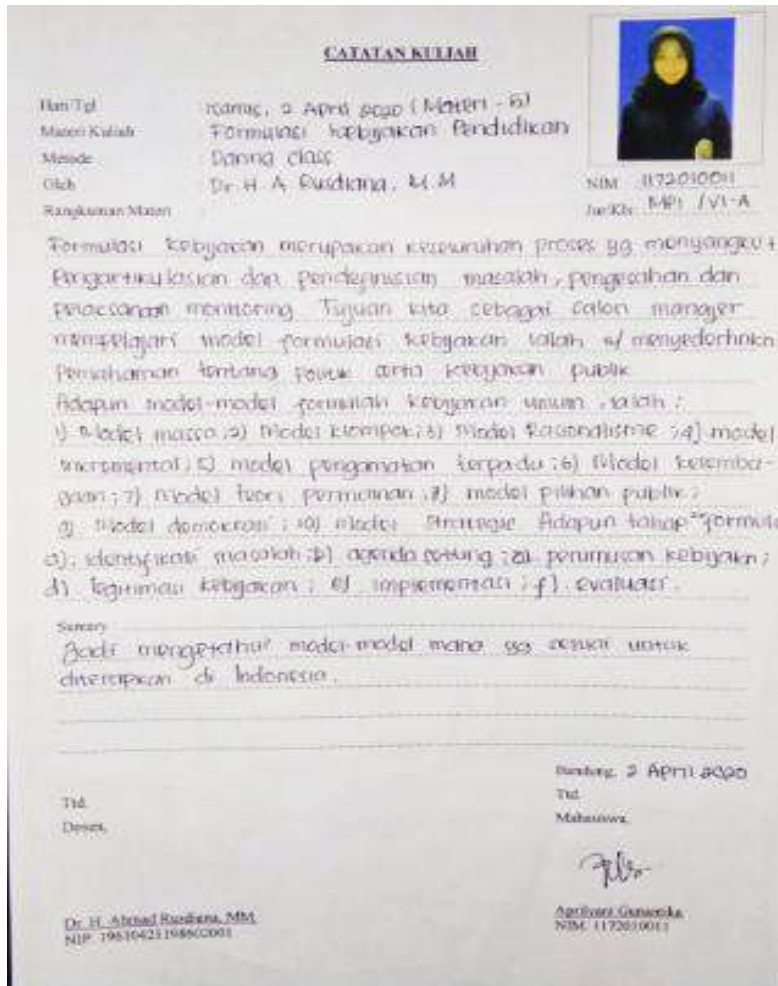 CATATAN KULIAH
Hari/Tgl Kamis, 2 April 2020 (Materi - 5)
Materi Kuliah Formulasi kebijakan Pendidikan
Metode Daring class
Oleh Dr. H. A. Rusdiana, M.M
NIM 1172010011
Rangkuman Materi :
Jur/Kls MPI / VI-A
Formulasi kebijakan merupakan keseluruhan proses yg menyangkut
Pengartikulasian dan pendefinisian masalah, pengesahan dan
pelaksanaan monitoring Tujuan kita sebagai calon manajer
mempelajari model formulasi kebijakan ialah u/
Pemahaman tentang politik serta kebijakan publik
Adapun model-model formulasi kebijakan umum ialah :
1) Model massa; 2) Model klompok; 3) Model Rasionalisme ; 4) model
incremental; 5) model pengamatan terpadu ; 6) Model kelemba-
gaan ; 7) Model teori permainan ; 8) model pilihan publik ;
9) Model demokrasi ; 10) Model Strategie Adapun tahap
a). identifikasi masalah ; b) agenda setting ; c). perumusan kebijakn ;
d) legitimasi kebijakan ; e) implementasi ; f). evaluasi.
Jadi mengetahui model-model mana yg sesuai untuk
diterapkan di Indonesia.
Bandung, 2 April 2020
Ttd.
Ttd.
Dosen,
Mahasiswa,
Dr. H. Ahmad Rusdiana, MM
NIP. 196104211986021001
NIM. 1172010011